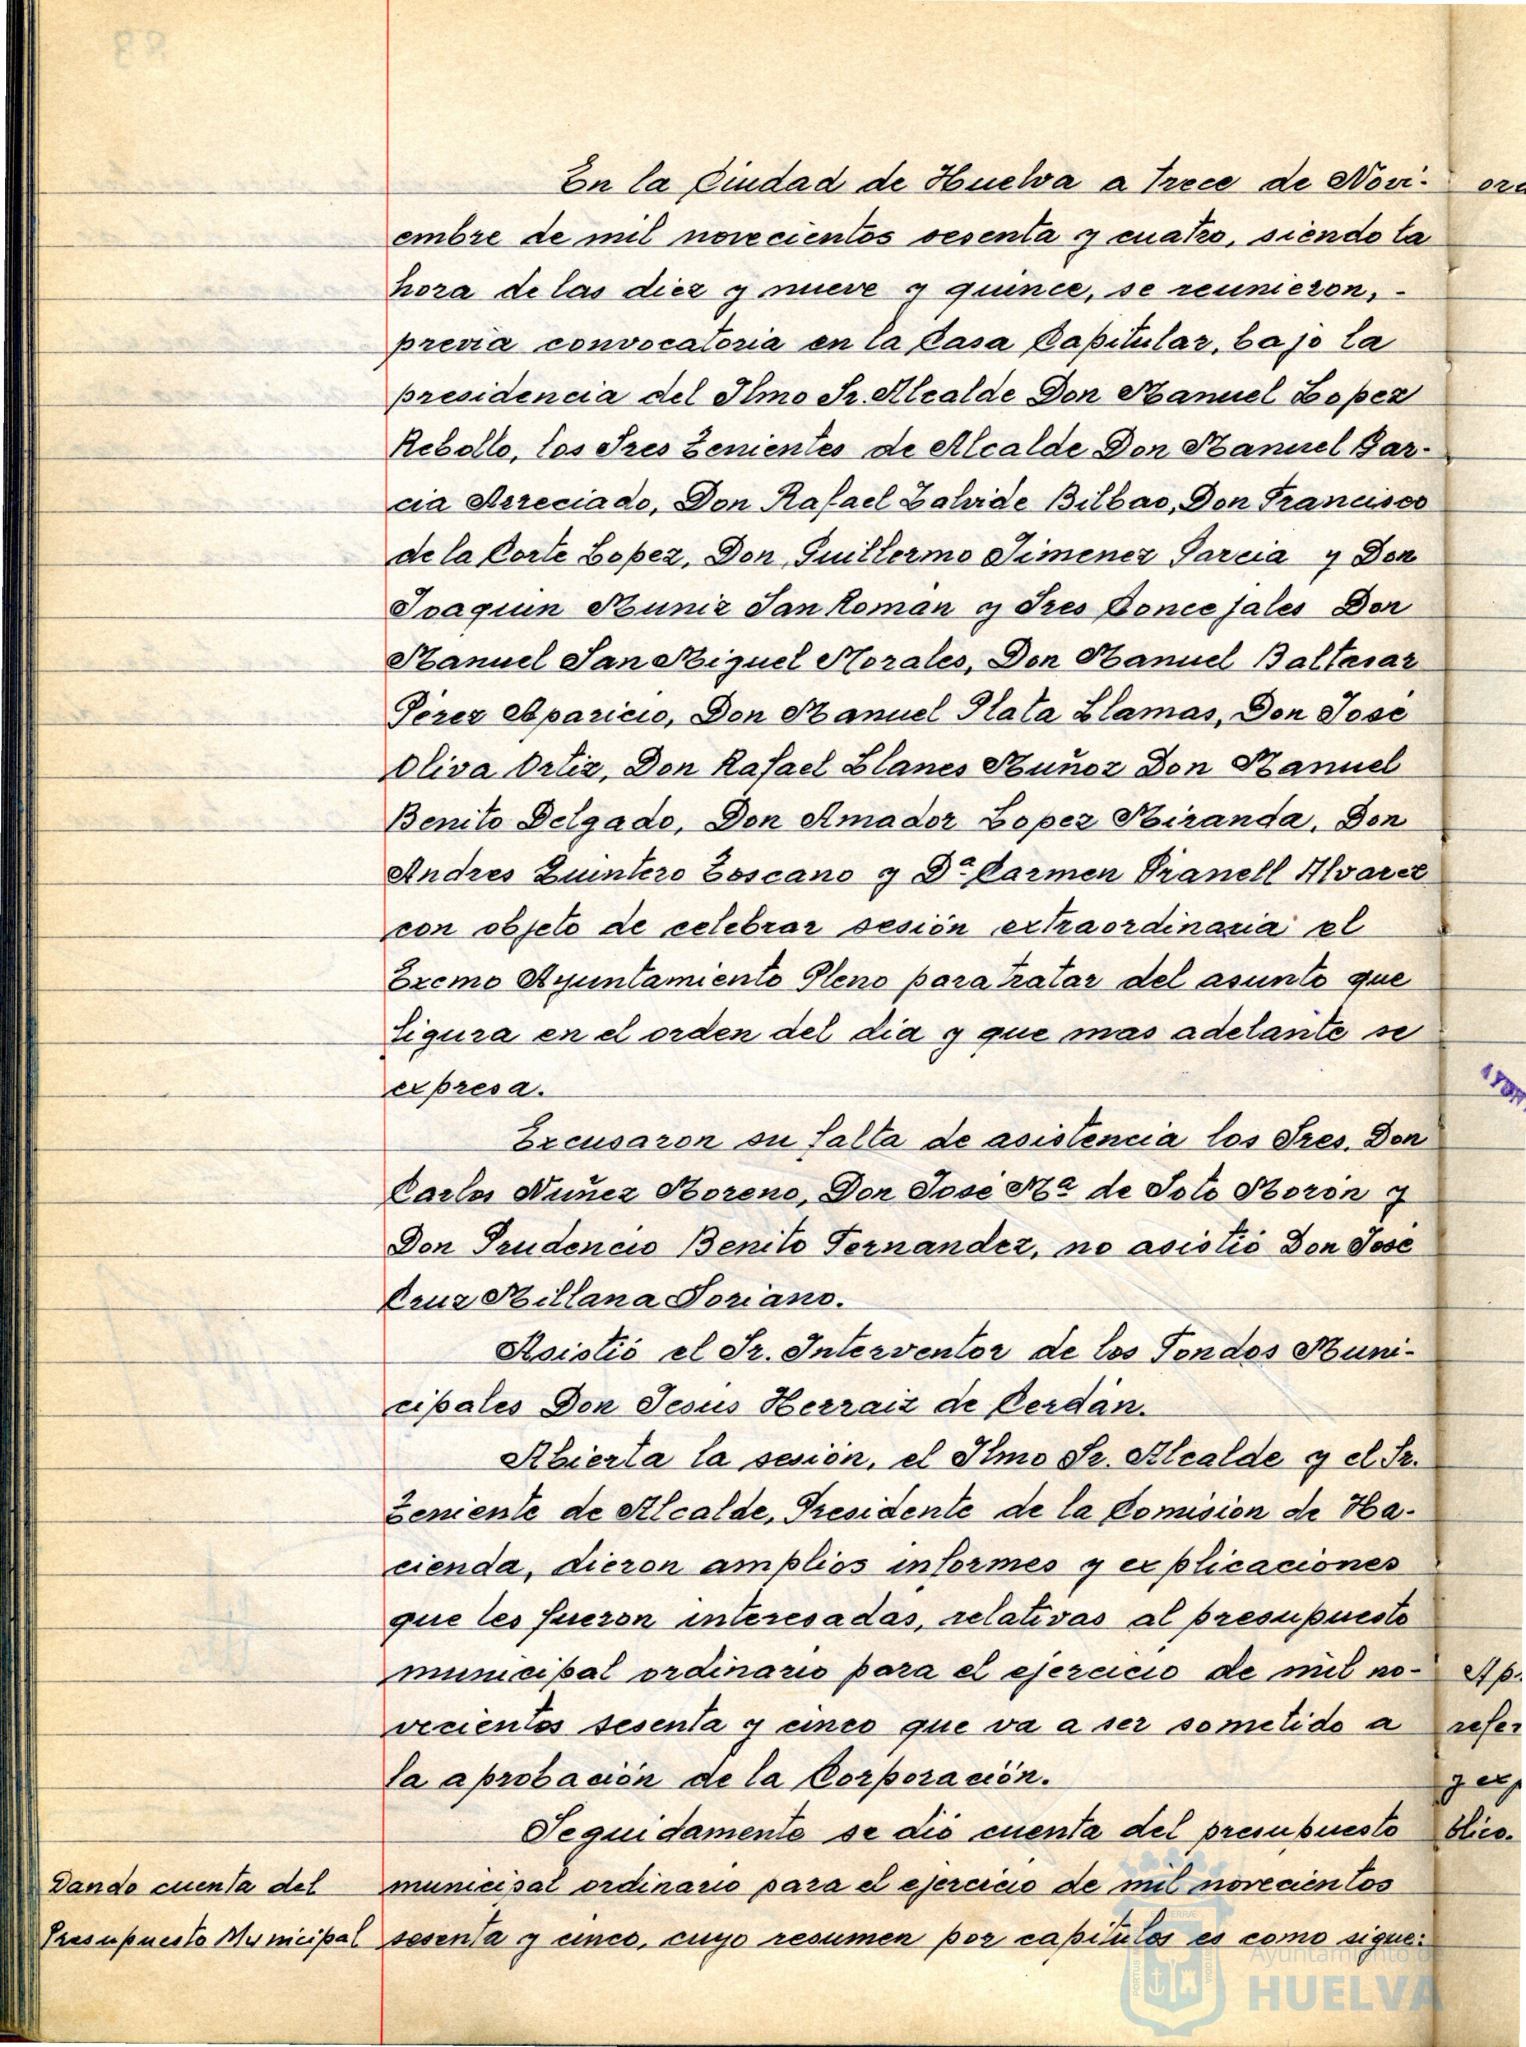 En la Ciudad de Huelva a trece de Novi-
embre de mil novecientos sesenta y cuatro, siendo la
hora de las diez y nueve y quince, se reunieron, -
previa convocatoria en la Casa Capitular, bajo la
presidencia del Ilmo Sr. Alcalde Don Manuel Lopez
Rebollo, los Sres Tenientes de Alcalde Don Manuel Gar-
cia Arreciado, Don Rafael Zalvide Bilbao, Don Francisco
de la Corte Lopez, Don Guillermo Jimenez Garcia y Don
Joaquin Muniz San Román y Sres Concejales Don
Manuel San Miguel Morales, Don Manuel Baltasar
Pérez Aparicio, Don Manuel Plata Llamas, Don José
Oliva Ortiz, Don Rafael Llanes Muñoz Don Manuel
Benito Delgado, Don Amador Lopez Miranda, Don
Andres Quintero Toscano y Dª Carmen Pranell Alvarez
con objeto de celebrar sesión extraordinaria el
Excmo Ayuntamiento Pleno para tratar del asunto que
figura en el orden del dia y que mas adelante se
expresa.
Excusaron su falta de asistencia los Sres. Don
Carlos Nuñez Moreno, Don José Mª de Soto Morón y
Don Prudencio Benito Fernandez, no asistió Don José
Cruz Millana Soriano.
Asistió el Sr. Interventor de los Fondos Muni-
cipales Don Jesús Herraiz de Cerdán.
Abierta la sesión, el Ilmo Sr. Alcalde y el Sr.
Teniente de Alcalde, Presidente de la Comision de Ha-
cienda, dieron amplios informes y explicaciones
que les fueron interesadas, relativas al presupuesto
municipal ordinario para el ejercicio de mil no-
vecientos sesenta y cinco que va a ser sometido a
la aprobación de la Corporación.
Seguidamente se dió cuenta del presupuesto
Dando cuenta del
municipal ordinario para el ejercicio de mil novecientos
Presupuesto Municipal
sesenta y cinco, cuyo resumen por capitulos es como sigue:
Ayuntamiento de
HUELVA